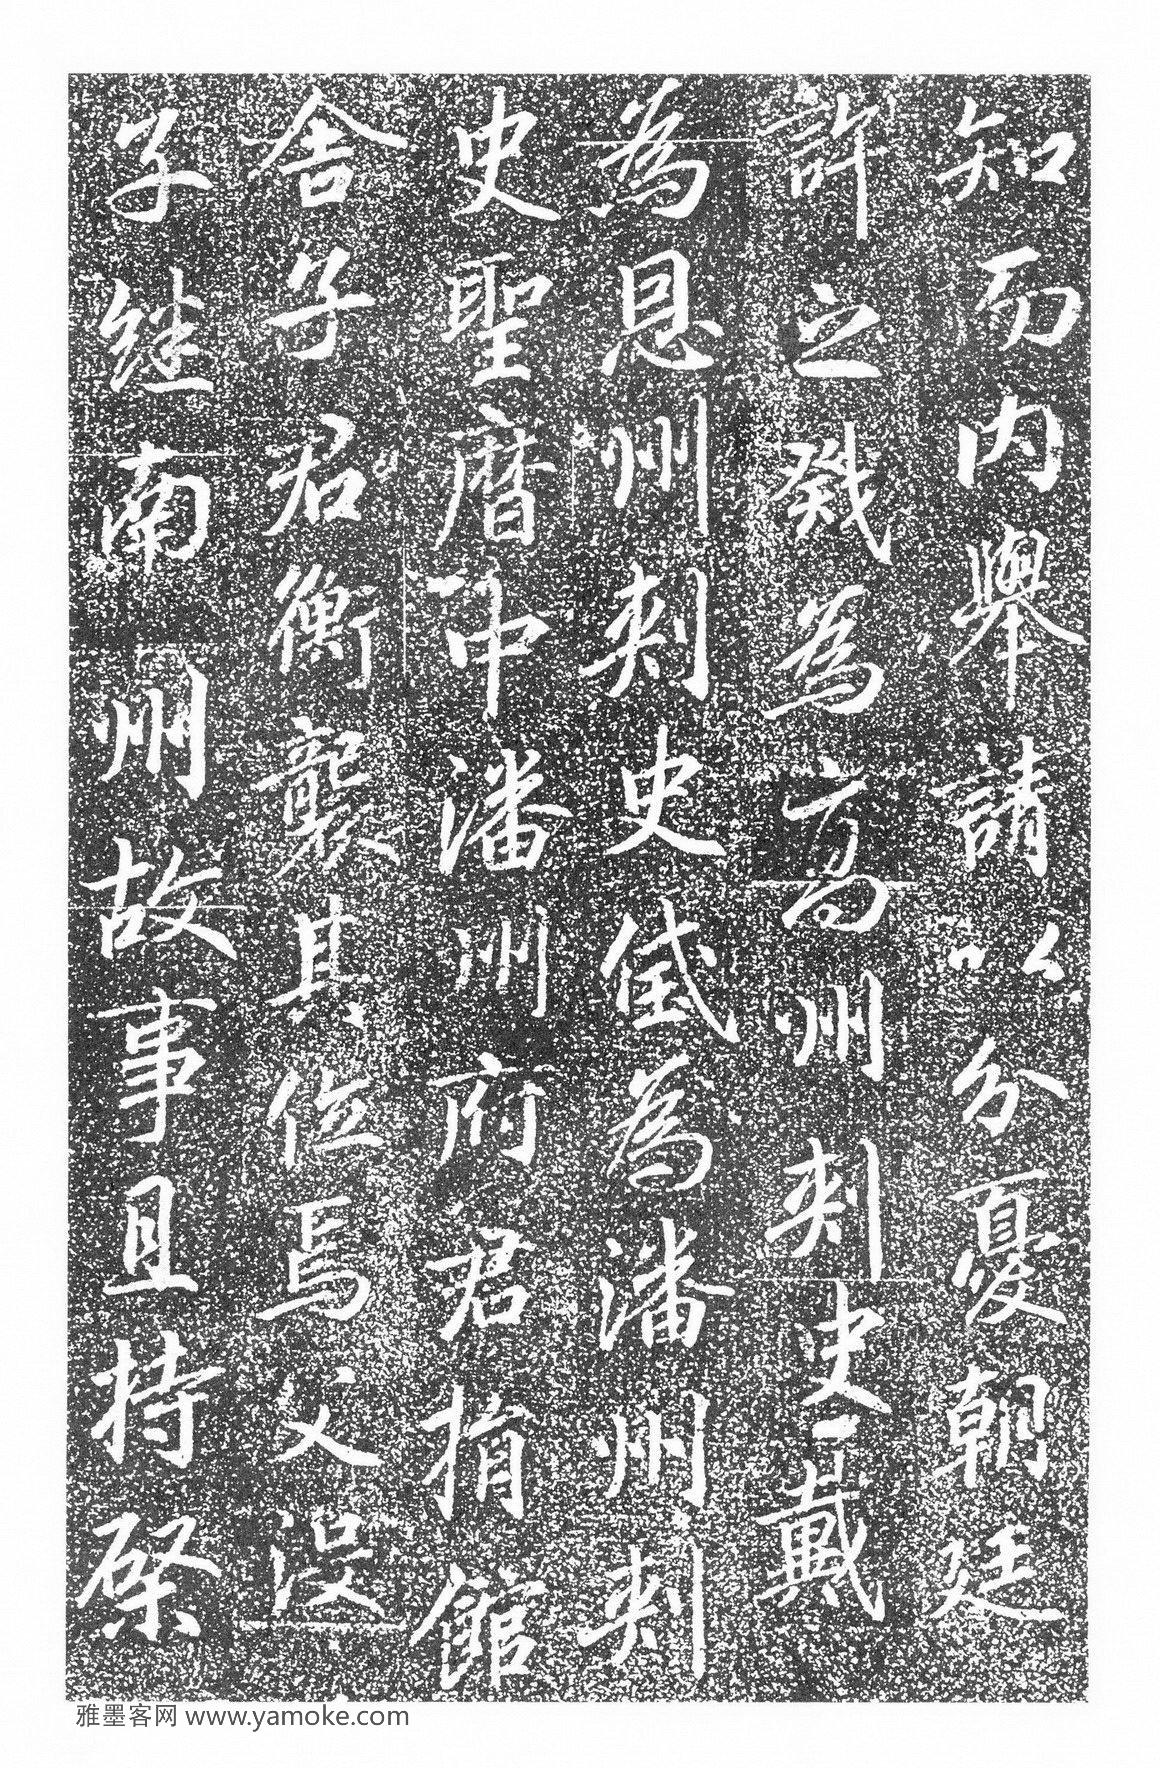 知而内舉請以分憂朝廷
許之戣為高州刺史戴
為恩州刺史猷為潘州刺
史聖曆中潘州府君捐館
舍子君衡襲其位焉父没
子继南州故事且持棨
雅墨客网 www.yamoke.com